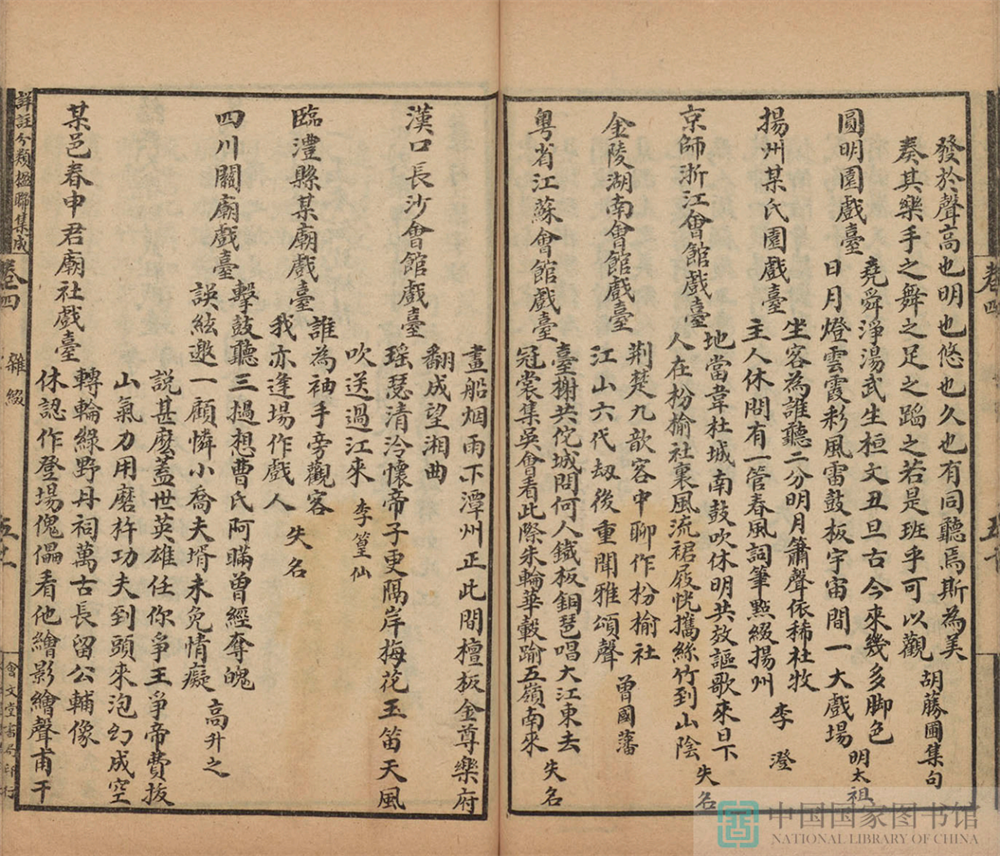 發於聲高也明也悠也久也有同聽焉斯為美
奏其樂手之舞之足之蹈之若是班乎可以觀 胡勝圃集句
圓明園戲臺
堯舜淨湯武生桓文丑旦古今來幾多脚色
日月燈雲霞彩風雷鼓板宇宙間一大戲場 明太祖
揚州某氏園戲臺
坐客為誰聽二分明月簫聲依稀杜牧
主人休問有一管春風詞筆點綴揚州 李澄
京師浙江會館戲臺
地當韋杜城南鼓吹休明共放謳歌來日下
人在枌榆社裏風流裙屐恍攜絲竹到山陰 失名
金陵湖南會館戲臺
荆楚九歌客中聊作枌榆社
江山六代刼後重聞雅頌聲 曾國藩
粤省江蘇會館戲臺
臺榭共佗城問何人鐵板銅琶唱大江東去
冠裳集吳會看此際朱輪華轂踰五嶺南來 失名
卷四
漢口長沙會館戲臺
畫船烟雨下潭州正此間檀板金尊樂府
翻成望湘曲
瑶瑟清泠懷帝子更隔岸梅花玉笛天風
吹送過江來 李篁仙
臨澧縣某廟戲臺
誰為袖手旁觀客
我亦逢場作戲人 失名
四川關廟戲臺
擊鼓聽三撾想曹氏阿瞞曾經奪魄
誤絃邀一顧憐小喬夫壻未免情癡 高升之
某邑春申君廟社戲臺
說甚麽蓋世英雄任你爭王爭帝費拔
山氣力用磨杵功夫到頭來泡幻成空
轉輪綠野丹祠萬古長留公輔像
休認作登場傀儡看他繪影繪聲甫干
詳註分類楹聯集成
卷四
雜綴
會文堂書局印行
中国国家图书馆
NATIONAL LIBRARY OF CHINA